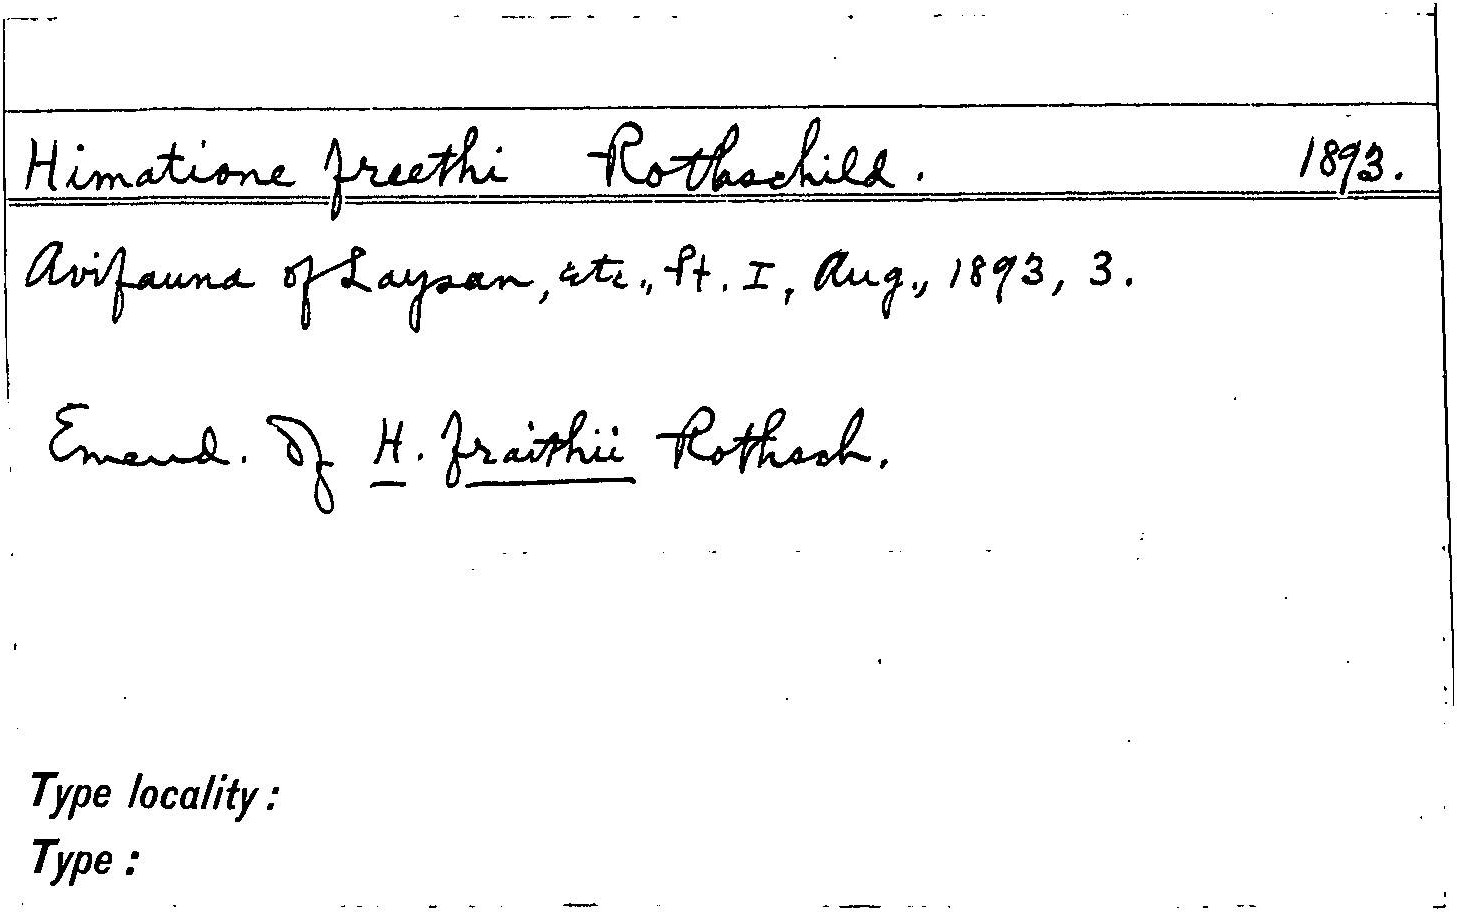 Himatione freethi Rothschild. 1893.
Avifauna of Laysan, etc., Pt. I, Aug., 1893, 3.
Emend. of H. fraithii Rothsch.
Type locality:
Type: